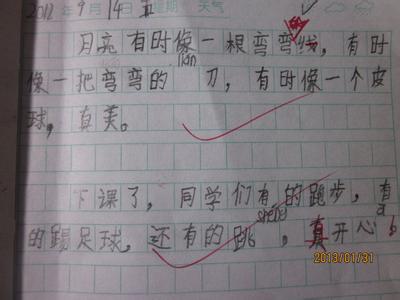 2012年9月14日 星期五 天气
的
月亮有时像一根弯弯线，有时
lián
像一把弯弯的 刀，有时像一个皮
球，真美。
下课了，同学们有的跑步，有
shéng
的踢足球，还有的跳 ，真开心
2013/01/31